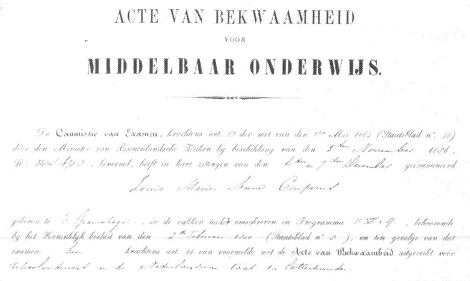 ACTE VAN BEKWAAMHEID
VOOR
MIDDELBAAR ONDERWIJS.
De Commissie van Examen, krachtens art. der wet van den Mei (Staatsblad n°. 50)
door den Minister van Binnenlandsche Zaken bij beschikking van den 5den November
N°. benoemd, heeft in hare zittingen van den 6den en 7den December geëxamineerd
Louis Marie Anne Couperus
geboren te 's Gravenhage, in de vakken omschreven in Programma behoorende
bij het Koninklijk besluit van den 2den Februari (Staatsblad n°. ), en ten gevolge van dat
examen krachtens art. van voormelde wet de Acte van Bekwaamheid uitgereikt voor
Schoolonderwijs in de Nederlandsche taal en letterkunde.